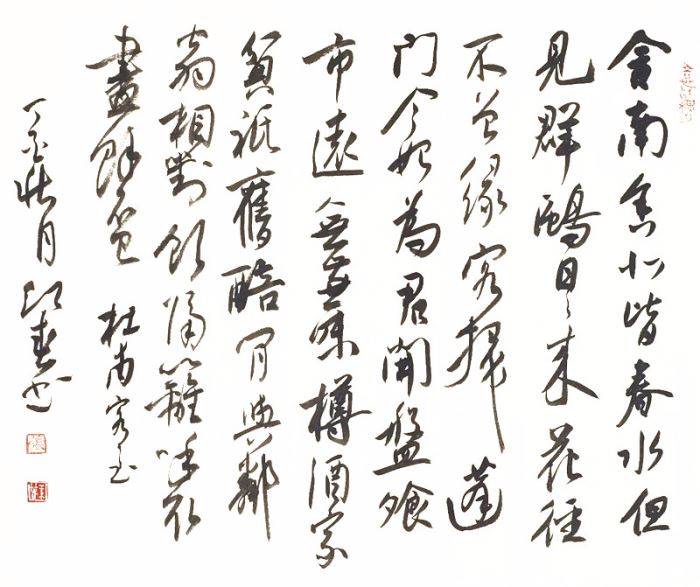 舍南舍北皆春水但
見群鷗日〻來花徑
不曾緣客掃蓬
門今始為君開盤飧
市遠無兼味樽酒家
貧祇舊醅肯與鄰
翁相對飲隔籬呼取
盡餘盃 杜甫客至
丁亥壯月